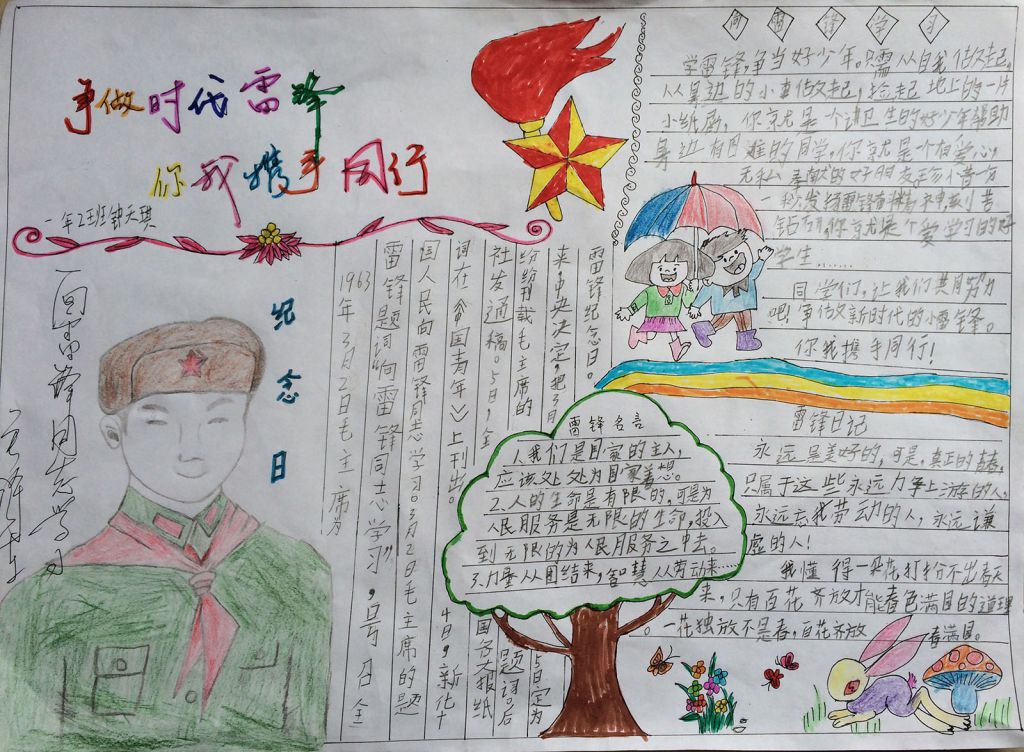 争做时代雷锋
你我携手同行
一年2班钟天琪
向雷锋同志学习
毛泽东
纪念日
1963年3月2日毛主席为
雷锋题词“向雷锋同志学习”,号召全
国人民向雷锋同志学习。3月2日毛主席的题
词在《中国青年》上刊出。4日,新华
社发通稿。5日,全国各大报纸
纷纷刊载毛主席的题词。后
来中央决定,把3月5日定为
雷锋纪念日。
雷锋名言
1.我们是国家的主人,
应该处处为国家着想。
2.人的生命是有限的,可是为
人民服务是无限的生命,投入
到无限的为人民服务之中去。
3.力量从团结来,智慧从劳动来……
向雷锋学习
学雷锋,争当好少年。只需从自我做起。
从身边的小事做起,捡起地上的一片
小纸屑,你就是一个讲卫生的好少年帮助
身边有困难的同学,你就是一个有爱心,
无私奉献的好朋友。珍惜分
一秒发扬雷锋
钻研,你就是个爱学习的好
学生……
同学们,让我们共同努力
吧!争做新时代的小雷锋。
你我携手同行!
雷锋日记
永远是美好的,可是,真正的青春,
只属于这些永远力争上游的人,
永远忘我劳动的人,永远谦
虚的人!
我懂得一朵花打扮不出春天
来,只有百花齐放才能春色满园的道理
。一花独放不是春,百花齐放春满园。